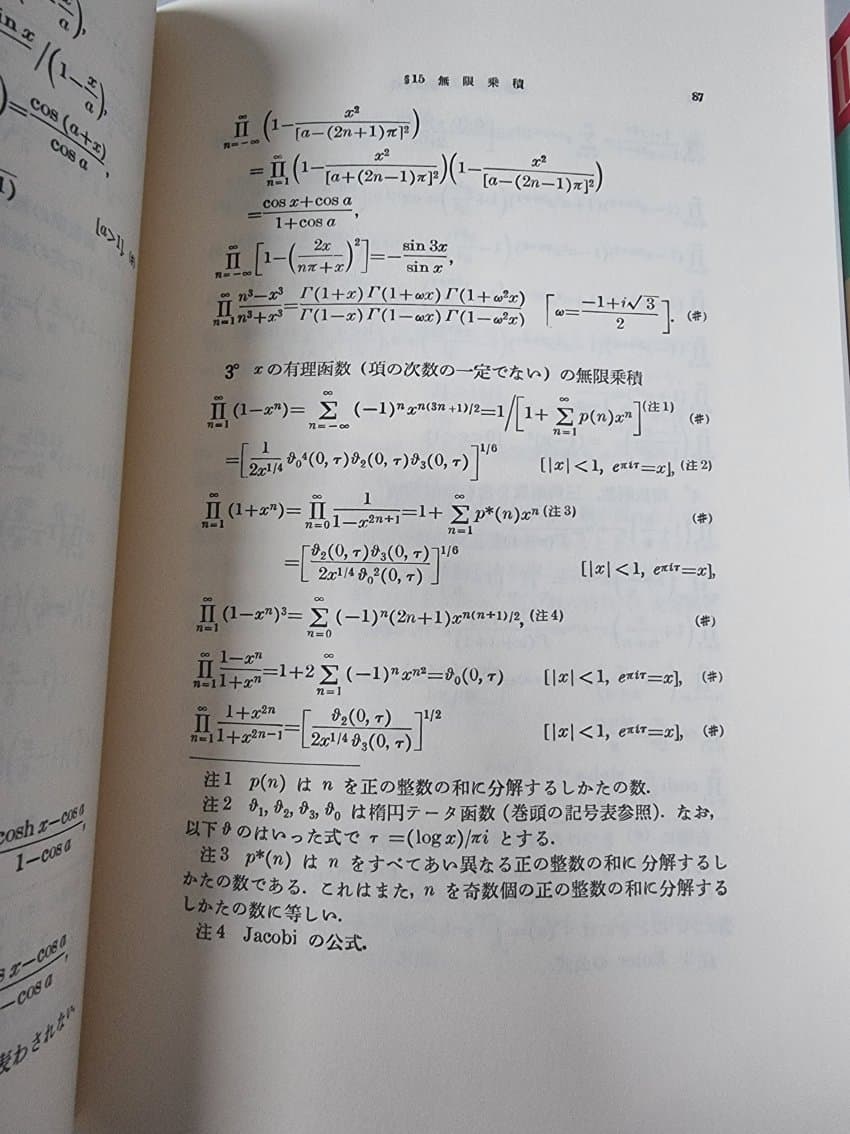 in x / (1-x/a),
)=cos (a+x)/cos a,
1)
[a>1] (#)
cosh x-cos a/1-cos a,
s x-cos a/-cos a,
§15 無 限 乗 積
87
∞∏n=-∞ (1-x²/[a-(2n+1)π]²)
=∞∏n=1 (1-x²/[a+(2n-1)π]²)(1-x²/[a-(2n-1)π]²)
=cos x+cos a/1+cos a,
∞∏n=-∞ [1-(2x/nπ+x)²]=-sin 3x/sin x,
∞∏n=1 n³-x³/n³+x³=Γ(1+x)Γ(1+ωx)Γ(1+ω²x)/Γ(1-x)Γ(1-ωx)Γ(1-ω²x) [ω=-1+i√3/2]. (#)
3° x の有理函数 (項の次数の一定でない) の無限乗積
∞∏n=1 (1-xⁿ)=∞∑n=-∞ (-1)ⁿx^{n(3n+1)/2}=1/[1+∞∑n=1 p(n)xⁿ] (注1) (#)
=[1/2x^{1/4} ϑ₀⁴(0, τ)ϑ₂(0, τ)ϑ₃(0, τ)]^{1/6} [|x|<1, e^{πiτ}=x], (注2)
∞∏n=1 (1+xⁿ)=∞∏n=0 1/1-x^{2n+1}=1+∞∑n=1 p*(n)xⁿ (注3) (#)
=[ϑ₂(0, τ)ϑ₃(0, τ)/2x^{1/4}ϑ₀²(0, τ)]^{1/6} [|x|<1, e^{πiτ}=x],
∞∏n=1 (1-xⁿ)³=∞∑n=0 (-1)ⁿ(2n+1)x^{n(n+1)/2}, (注4) (#)
∞∏n=1 1-xⁿ/1+xⁿ=1+2∞∑n=1 (-1)ⁿx^{n²}=ϑ₀(0, τ) [|x|<1, e^{πiτ}=x], (#)
∞∏n=1 1+x^{2n}/1+x^{2n-1}=[ϑ₂(0, τ)/2x^{1/4}ϑ₃(0, τ)]^{1/2} [|x|<1, e^{πiτ}=x], (#)
注1 p(n) は n を正の整数の和に分解するしかたの数.
注2 ϑ₁, ϑ₂, ϑ₃, ϑ₀ は楕円テータ函数 (巻頭の記号表参照). なお,
以下 ϑ のはいった式で τ=(log x)/πi とする.
注3 p*(n) は n をすべてあい異なる正の整数の和に分解するし
かたの数である. これはまた, n を奇数個の正の整数の和に分解する
しかたの数に等しい.
注4 Jacobi の公式.